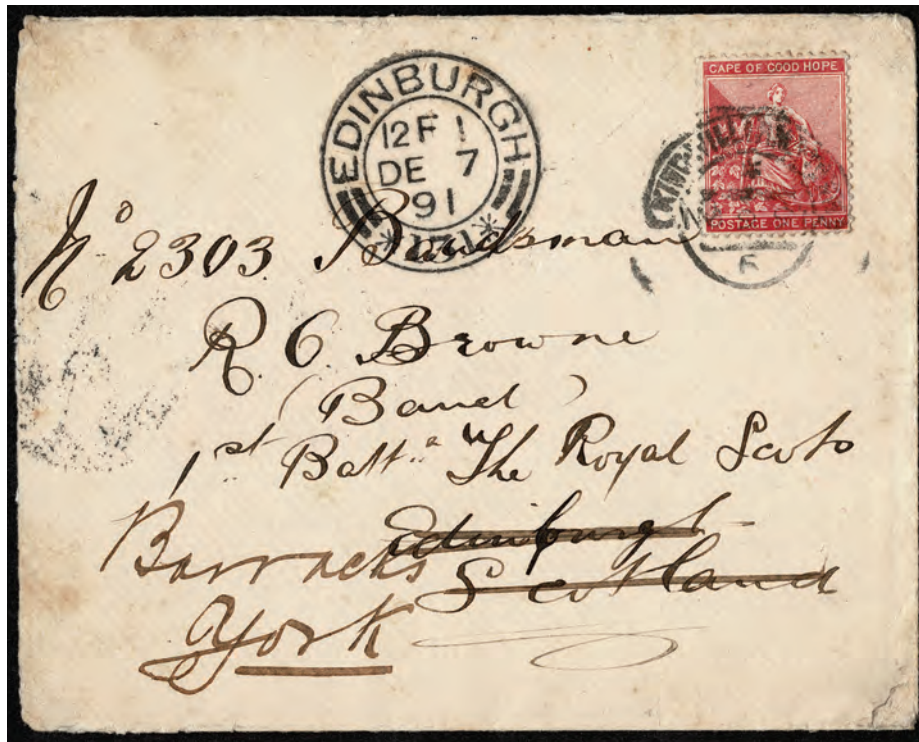 EDINBURGH
12 F 1
DE 7
91
*131*
CAPE OF GOOD HOPE
POSTAGE ONE PENNY
6
No 2303. Bandsman
R. C. Browne
(Band)
1st Battn "The Royal Scots
Edinburgh
Barracks Scotland
York